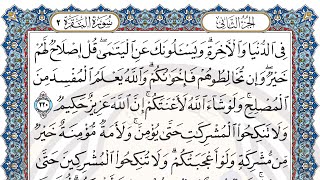 الجزء الثاني
سورة البقرة ٢
فِى الدُّنْيَا وَالْاٰخِرَةِ ۗ وَيَسْـَٔلُوْنَكَ عَنِ الْيَتٰمٰى ۗ قُلْ اِصْلَاحٌ لَّهُمْ
خَيْرٌ ۗ وَاِنْ تُخَالِطُوْهُمْ فَاِخْوَانُكُمْ ۗ وَاللّٰهُ يَعْلَمُ الْمُفْسِدَ مِنَ
الْمُصْلِحِ ۗ وَلَوْ شَاۤءَ اللّٰهُ لَاَعْنَتَكُمْ ۗ اِنَّ اللّٰهَ عَزِيْزٌ حَكِيْمٌ ٢٢٠
وَلَا تَنْكِحُوا الْمُشْرِكٰتِ حَتّٰى يُؤْمِنَّ ۗ وَلَاَمَةٌ مُّؤْمِنَةٌ خَيْرٌ
مِّنْ مُّشْرِكَةٍ وَّلَوْ اَعْجَبَتْكُمْ ۚ وَلَا تُنْكِحُوا الْمُشْرِكِيْنَ حَتّٰى